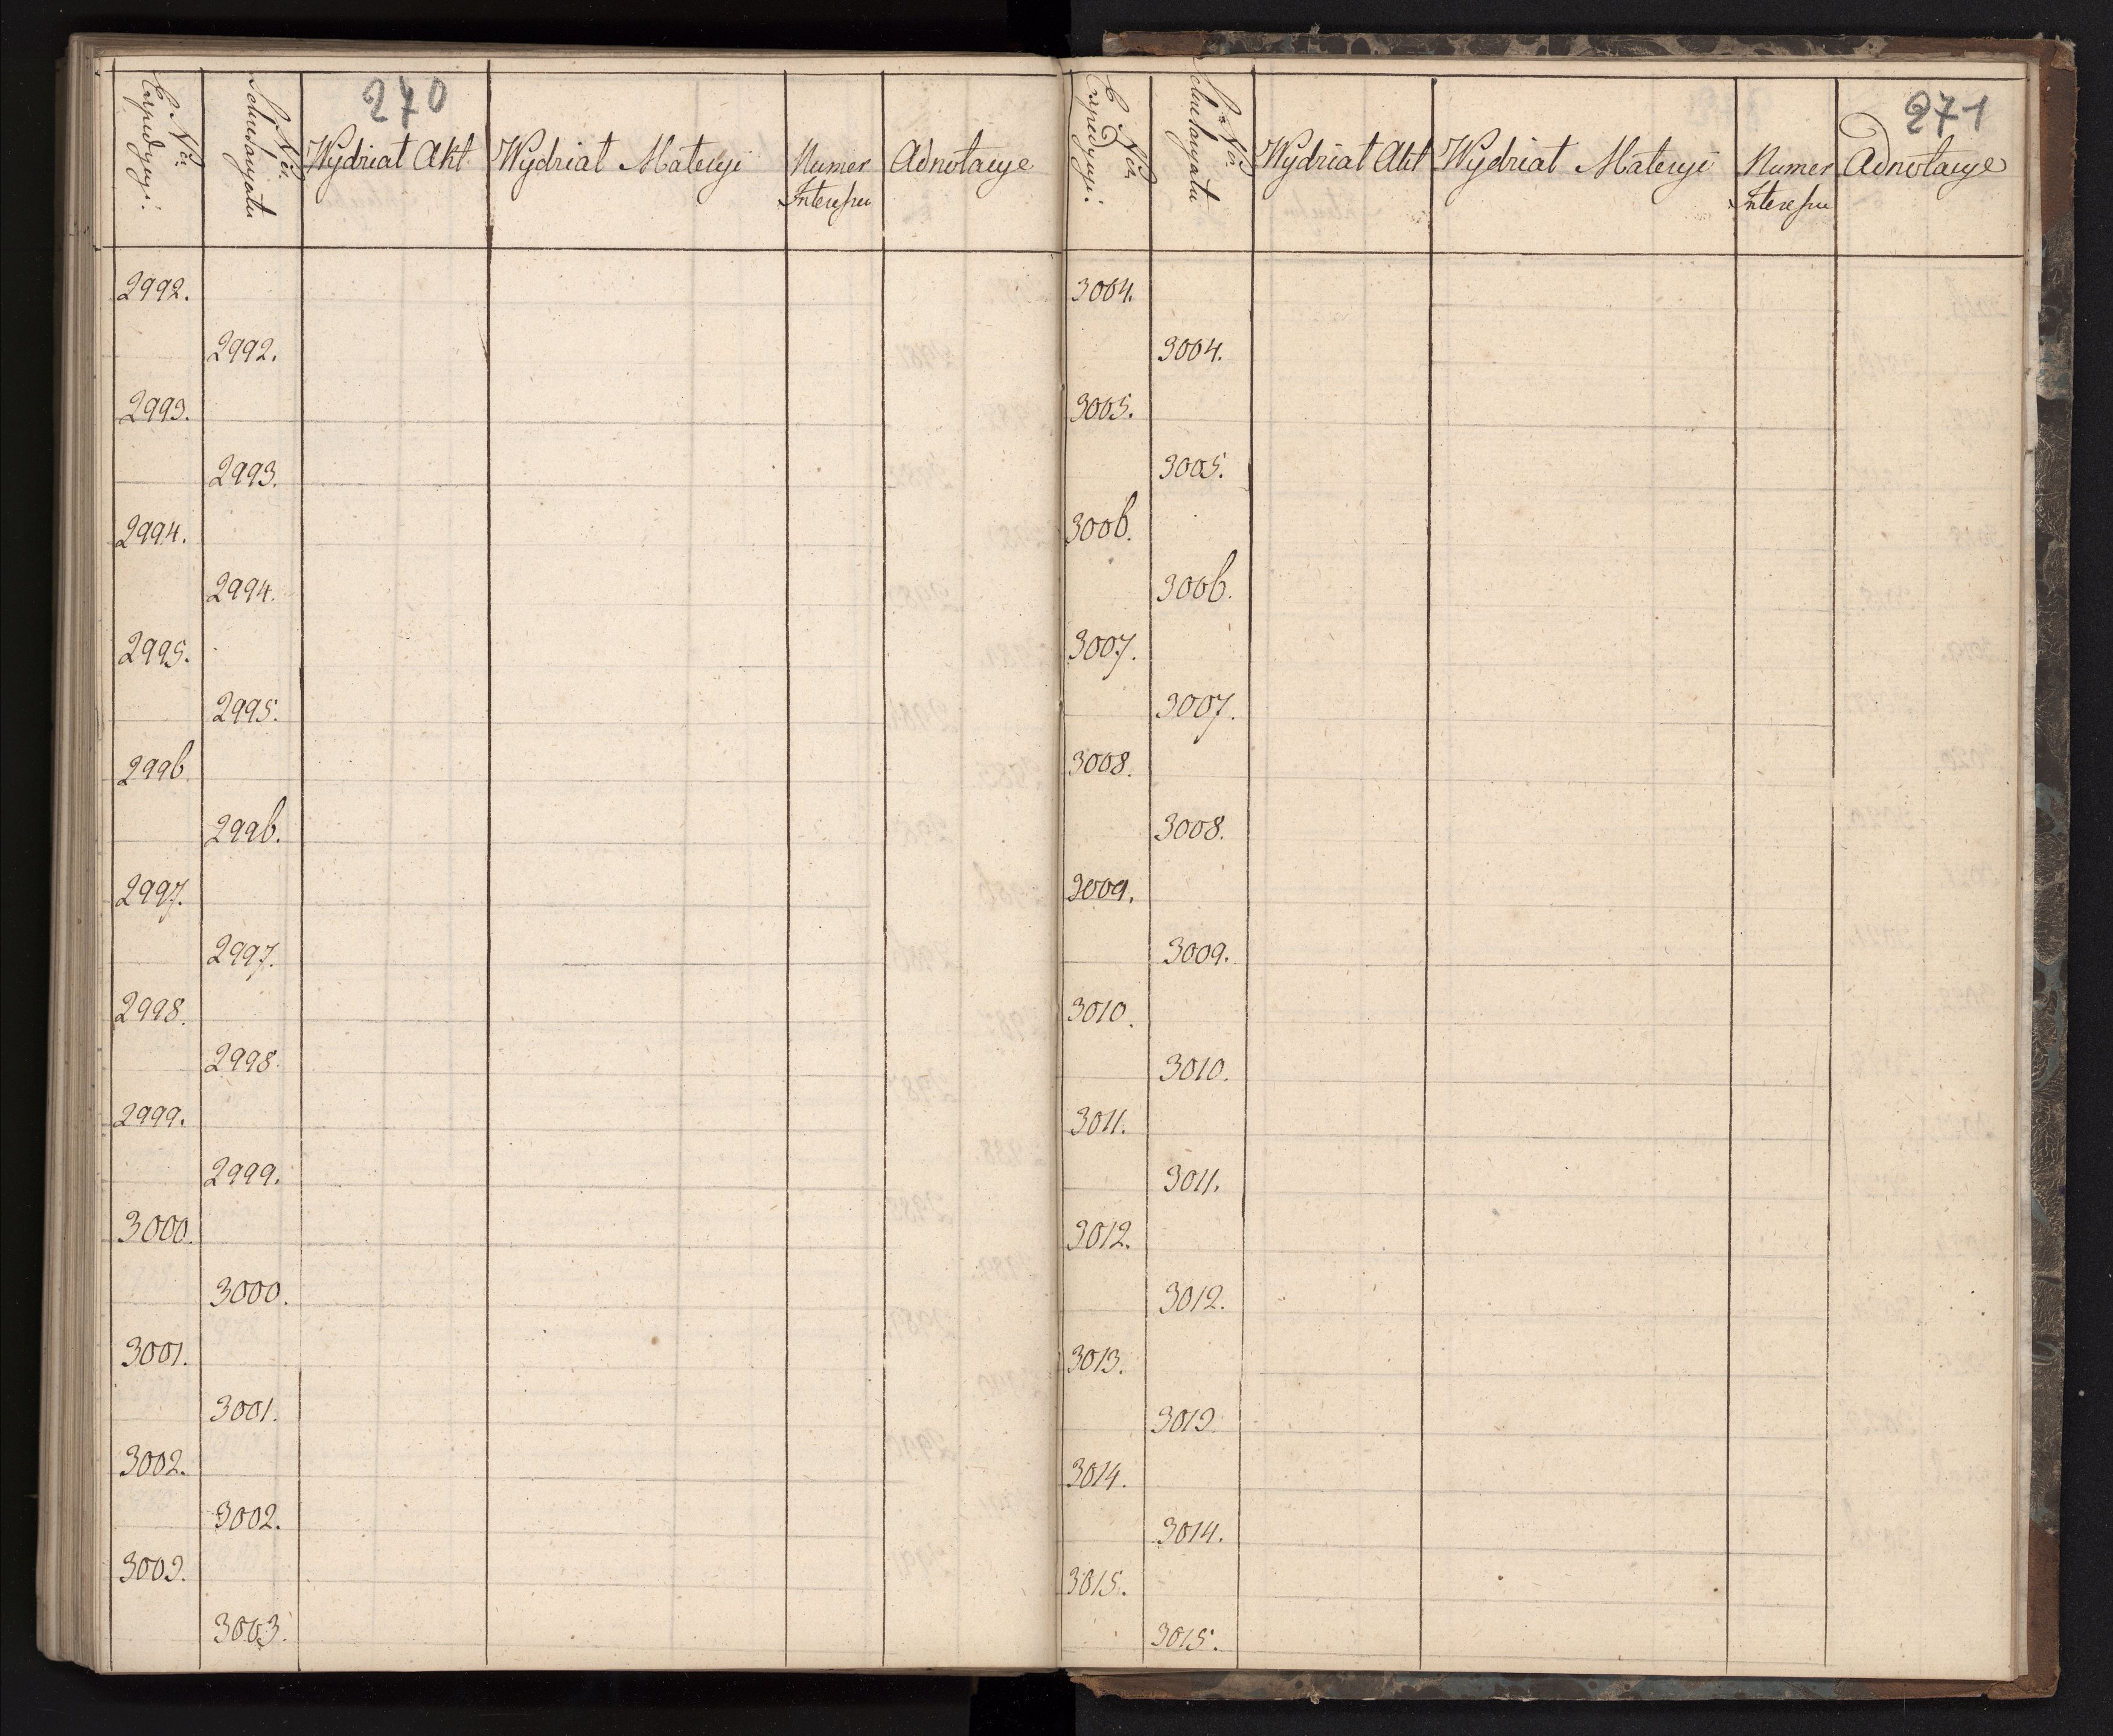 270
Nr. Expedycyi:
Nr.
Wydział Akt
Wydział Materyi
Numer Interessu
Adnotacye
2992.
2992.
2993.
2993.
2994.
2994.
2995.
2995.
2996
2996.
2997.
2997.
2998.
2998.
2999.
2999.
3000.
3000.
3001.
3001.
3002.
3002.
3003.
3003.
271
Nr. Expedycyi:
Nr.
Wydział Akt
Wydział Materyi
Numer Interessu
Adnotacye
3004.
3004.
3005.
3005.
3006.
3006.
3007.
3007.
3008.
3008.
3009.
3009.
3010.
3010.
3011.
3011.
3012.
3012.
3013.
3013.
3014.
3014.
3015.
3015.